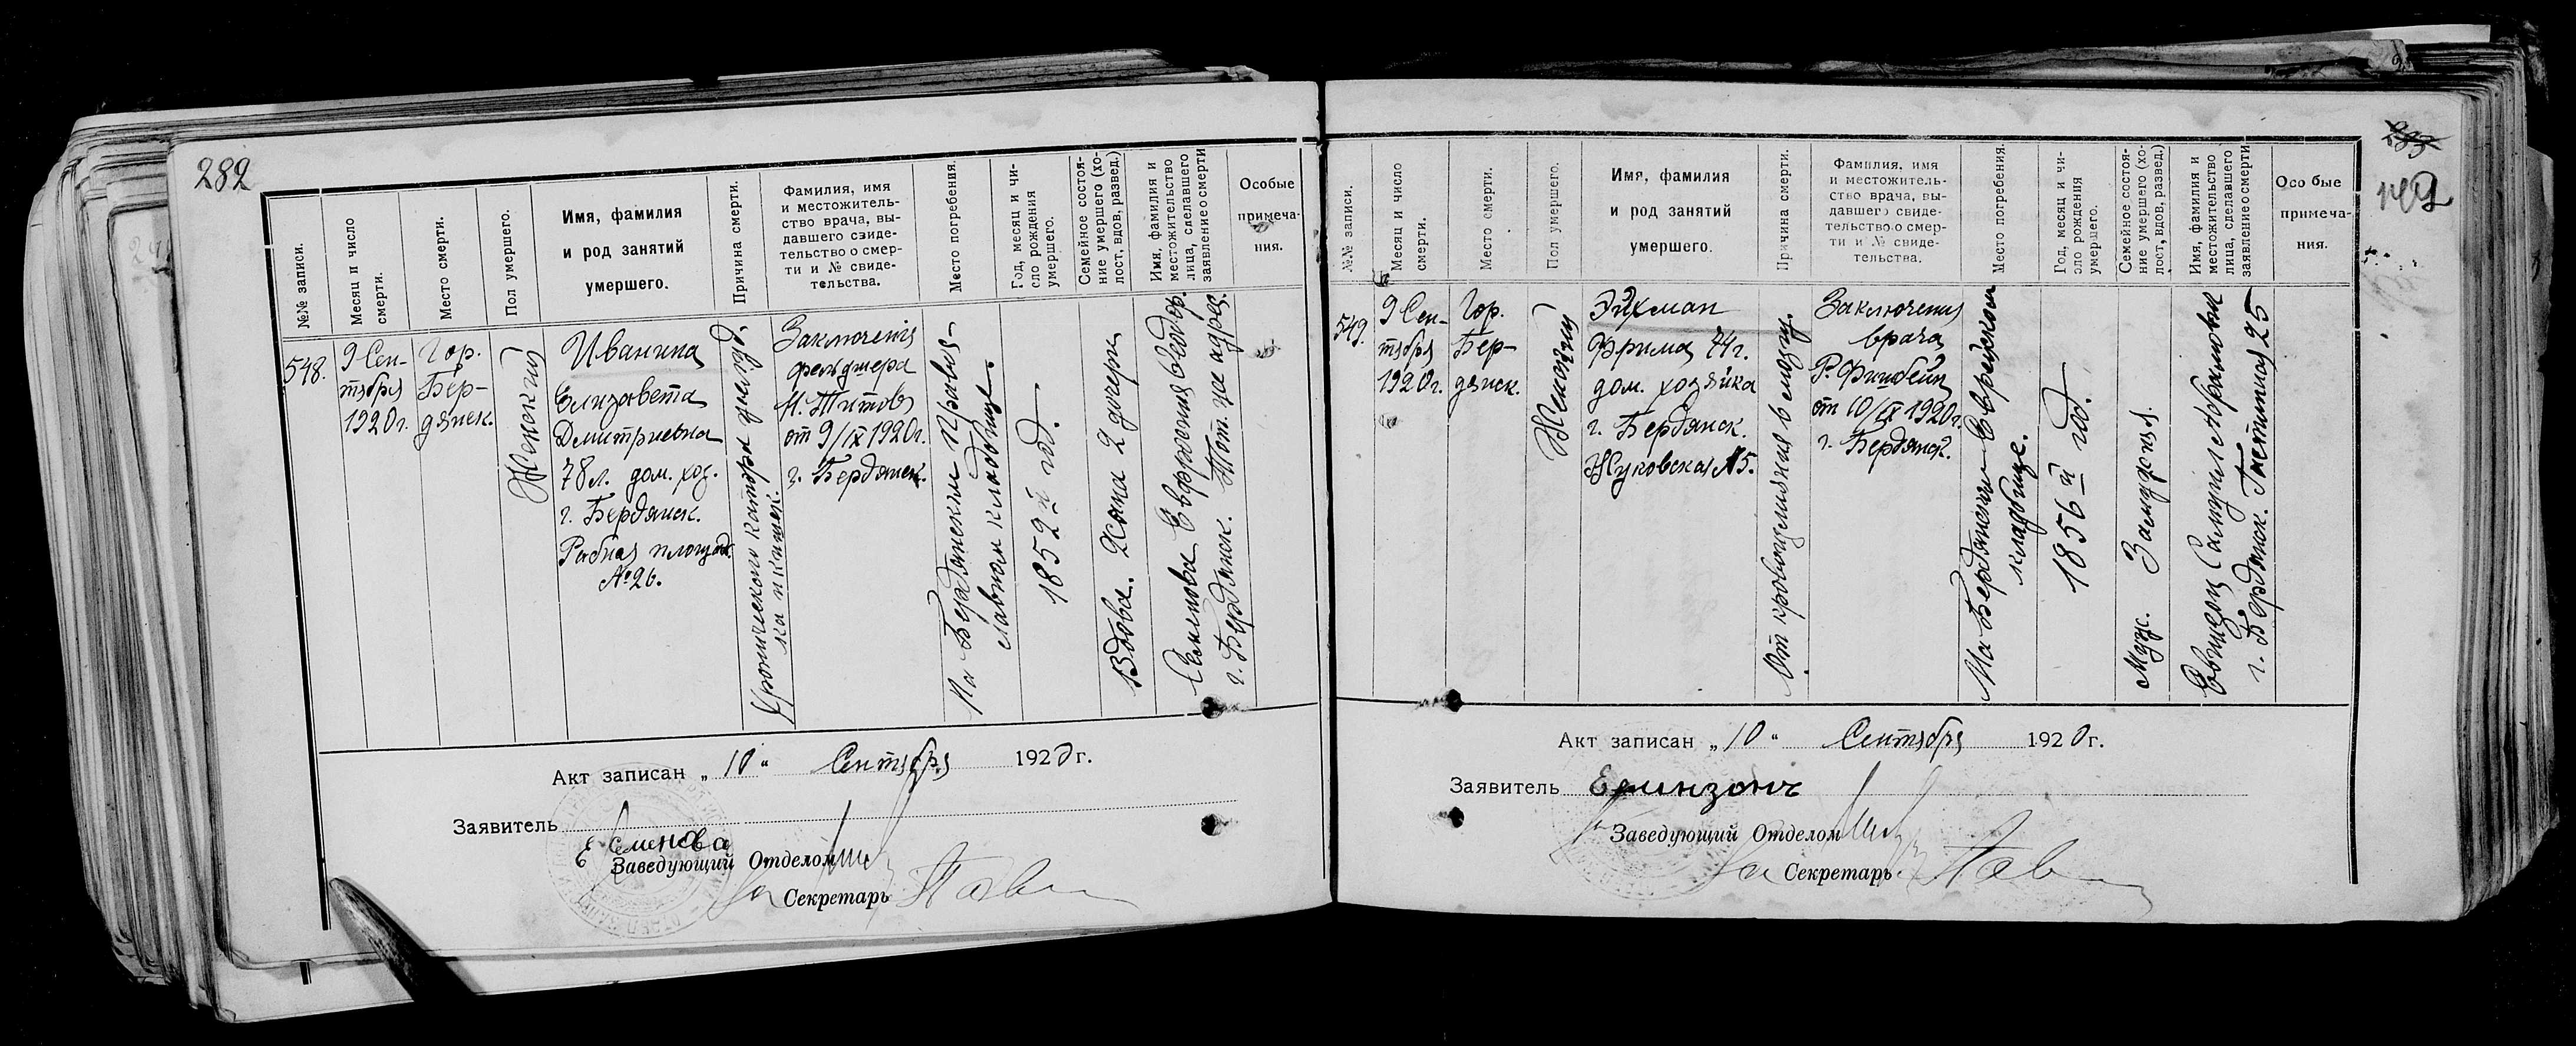 282
№№ записи.
Месяц и число
смерти.
Место смерти.
Пол умершего.
Имя, фамилия
и род занятий
умершего.
Причина смерти.
Фамилия, имя
и местожитель-
ство врача, вы-
давшего свиде-
тельство о смер-
ти и № свиде-
тельства.
Место погребения.
Год, месяц и чи-
сло рождения
умершего.
Семейное состоя-
ние умершего (хо-
лост, вдов, развед.)
Имя, фамилия и
местожительство
лица, сделавшего
заявление о смерти
Особые
примеча-
ния.
548.
9 Сен-
тября
1920 г.
Гор.
Бер-
дянск.
Женский
Иванина
Елизавета
Дмитриевна
78 л. дом. хоз.
г. Бердянск.
площад.
№ 26.
Хронического катара желуд.
ка и кишек.
Заключения
фельдшера
Н. Титов
от 9/IX 1920 г.
г. Бердянск.
На Бердянском Право-
славном кладбище.
1852 й год.
Вдова. 2 дочери
Семенова Евфросиния
г. Бердянск. Тот же адрес.
Акт записан „ 10 “ Сентября 1920 г.
Заявитель
Е Семенова
Заведующий Отделом
За Секретарь
283
№№ записи.
Месяц и число
смерти.
Место смерти.
Пол умершего.
Имя, фамилия
и род занятий
умершего.
Причина смерти.
Фамилия, имя
и местожитель-
ство врача, вы-
давшего свиде-
тельство о смер-
ти и № свиде-
тельства.
Место погребения.
Год, месяц и чи-
сло рождения
умершего.
Семейное состоя-
ние умершего (хо-
лост, вдов, развед.)
Имя, фамилия и
местожительство
лица, сделавшего
заявление о смерти
Особые
примеча-
ния.
549.
9 Сен-
тября
1920 г.
Гор.
Бер-
дянск.
Женский
Эйхман
Фрима 44 г.
дом. хозяйка
г. Бердянск.
Жуковская № 5.
От кровоизлияния в мозгу.
Заключения
врача
Р. Фишбейн
от 10/IX 1920 г.
г. Бердянск.
На Бердянском Еврейском
кладбище.
1856 й год.
Муж.
Самуил Абрамович
г. Бердянск. Гостиная 25
Акт записан „ 10 “ Сентября 1920 г.
Заявитель
Заведующий Отделом
За Секретарь